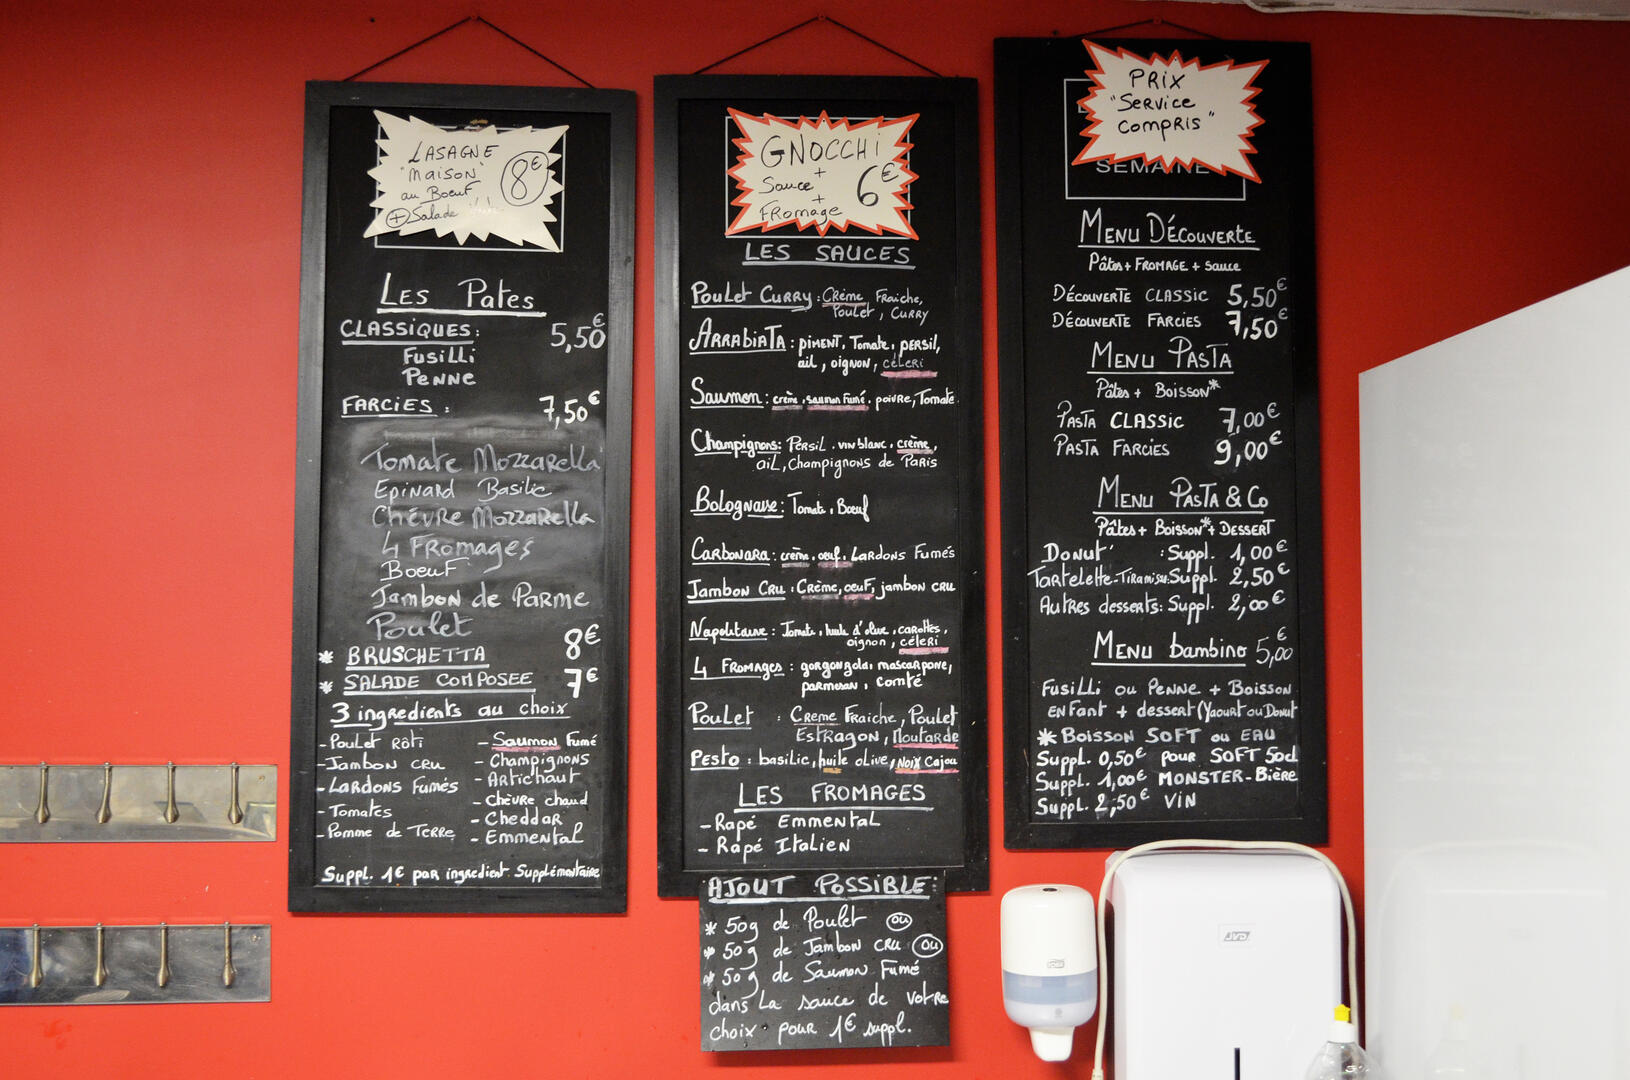 LASAGNE
"MAISON"
au Boeuf
+ Salade
8€
Les Pates
CLASSIQUES: 5,50€
Fusilli
Penne
FARCIES: 7,50€
Tomate Mozzarella
Epinard Basilic
Chèvre Mozzarella
4 Fromages
Boeuf
Jambon de Parme
Poulet
* BRUSCHETTA 8€
* SALADE COMPOSEE 7€
3 ingredients au choix
- Poulet Rôti
- Jambon cru
- Lardons Fumés
- Tomates
- Pomme de Terre
- Saumon Fumé
- Champignons
- Artichaut
- Chèvre chaud
- Cheddar
- Emmental
Suppl. 1€ par ingredient Supplémentaire
GNOCCHI
+
Sauce
+
Fromage
6€
LES SAUCES
Poulet Curry: Crème Fraiche,
Poulet, Curry
Arrabiata: piment, Tomate, persil,
ail, oignon, céleri
Saumon: crème, saumon fumé, poivre, Tomate
Champignons: Persil, vin blanc, crème,
ail, Champignons de Paris
Bolognaise: Tomate, Boeuf
Carbonara: crème, oeuf, Lardons Fumés
Jambon Cru: Crème, oeuf, jambon cru
Napolitaine: Tomate, huile d'olive, carottes,
oignon, céleri
4 Fromages: gorgonzola, mascarpone,
parmesan, comté
Poulet: Creme Fraiche, Poulet
Estragon, Moutarde
Pesto: basilic, huile olive, Noix Cajou
LES FROMAGES
- Rapé Emmental
- Rapé Italien
AJOUT POSSIBLE:
* 50g de Poulet ou
* 50g de Jambon cru ou
* 50g de Saumon Fumé
dans la sauce de votre
choix pour 1€ suppl.
PRIX
"Service
Compris"
SEMAINE
Menu Découverte
Pâtes + Fromage + sauce
Découverte Classic 5,50€
Découverte Farcies 7,50€
Menu Pasta
Pâtes + Boisson*
Pasta Classic 7,00€
Pasta Farcies 9,00€
Menu Pasta & Co
Pâtes + Boisson* + Dessert
Donut : Suppl. 1,00€
Tartelette-Tiramisu: Suppl. 2,50€
Autres desserts: Suppl. 2,00€
Menu bambino 5,00€
Fusilli ou Penne + Boisson
enfant + dessert (Yaourt ou Donut
* Boisson SOFT ou EAU
Suppl. 0,50€ pour SOFT 50cl
Suppl. 1,00€ MONSTER-Bière
Suppl. 2,50€ VIN
JVD